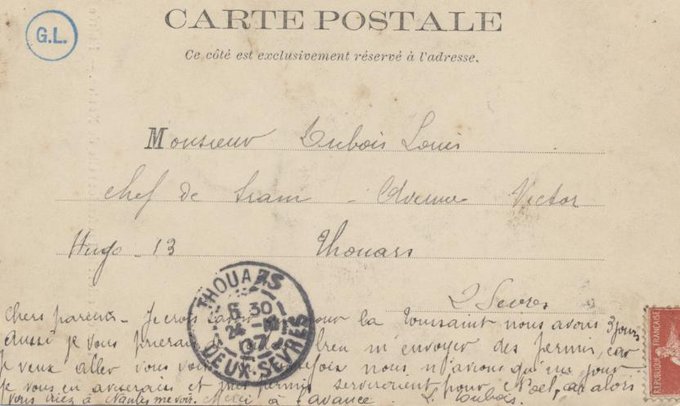 G.L.
CARTE POSTALE
Ce côté est exclusivement réservé à l'adresse.
Monsieur Dubois Louis
Chef de train - Avenue Victor
Hugo - 13 Thouars
2 Sevres
THOUARS
6 30
24
07
DEUX-SEVRES
Chers parents - Je crois pour la Toussaint nous avons 3 jours
Aussi je vous prierais bien m'envoyer des permis, car
je veux aller vous voir nous n'avons qu'un jour
je vous en aviserais et mes permis serviraient pour Noël, ou alors
vous iriez à Nantes me voir. Merci à l'avance L. Dubois.
REPUBLIQUE FRANÇAISE